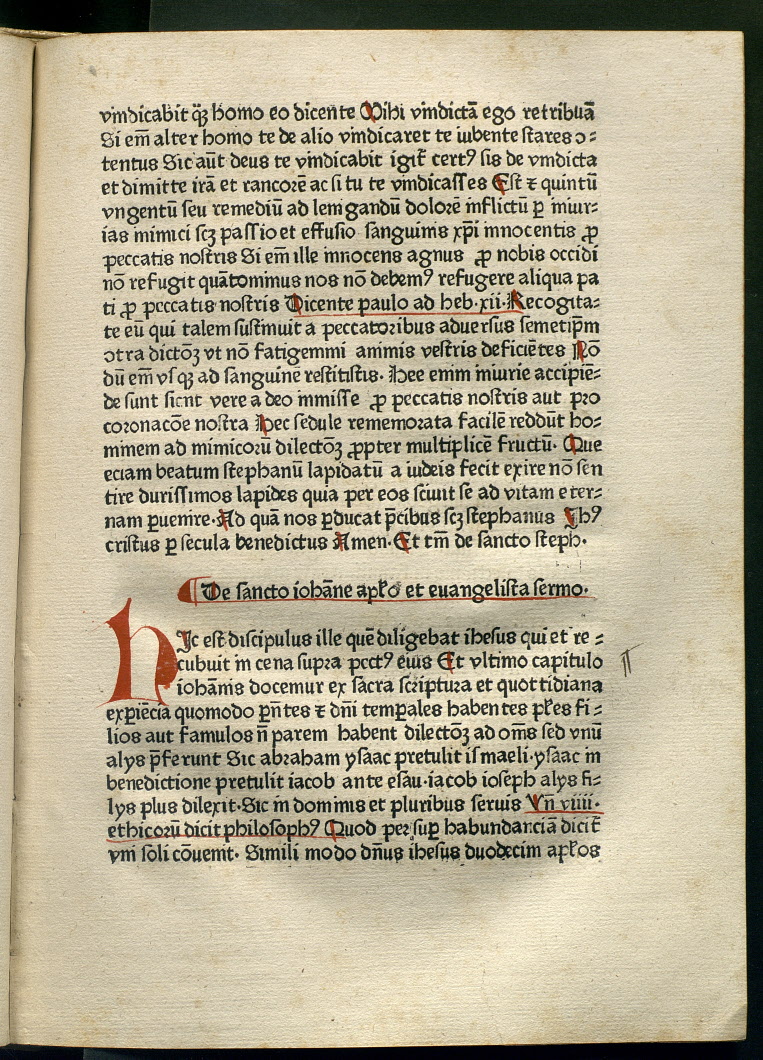 vindicabit qꝫ homo eo dicente Mihi vindictā ego retribuā
Si em̄ alter homo te de alio vindicaret te iubente stares ɔ⸗
tentus Sic aūt deus te vindicabit igit᷑ certꝰ sis de vindicta
et dimitte irā et rancorē ac si tu te vindicasses Est ⁊ quintū
vngentū seu remediū ad lenigandū dolorē inflictū ꝑ iniur⸗
ias inimici scꝫ passio et effusio sanguinis xp̄i innocentis ꝓ
peccatis nostris Si em̄ ille innocens agnus ꝓ nobis occidi
nō refugit quātominus nos nō debemꝰ refugere aliqua pa
ti ꝓ peccatis nostris Dicente paulo ad heb.xii. Recogita⸗
te eū qui talem sustinuit a peccatoribus aduersus semetip̄m
ɔtra dictōꝫ vt nō fatigemini animis vestris deficiētes Nō
dū em̄ vsqꝫ ad sanguinē restitistis. Hee enim iniurie accipiē⸗
de sunt sicut vere a deo immisse ꝓ peccatis nostris aut pro
coronacōe nostra Hec sedule rememorata facilē reddūt ho⸗
minem ad inimicorū dilectōꝫ ꝓpter multiplicē fructū. Que
eciam beatum stephanū lapidatū a iudeis fecit exire nō sen
tire durissimos lapides quia per eos sciuit se ad vitam eter⸗
nam ꝑuenire. Ad quā nos ꝑducat p̄cibus scꝫ stephanus Ihꝰ
cristus ꝑ secula benedictus Amen. Et tm̄ de sancto steph.
De sancto iohāne apł̄o et euangelista sermo.
HIc est discipulus ille quē diligebat ihesus qui et re⸗
cubuit in cena supra pectꝰ eius Et vltimo capitulo
iohānis docemur ex sacra scriptura et quottidiana
expiēcia quomodo pn̄tes ⁊ dn̄i temꝑales habentes pł̄es fi⸗
lios aut famulos n̄ parem habent dilectōꝫ ad om̄s sed vnū
alys p̄ferunt Sic abraham ysaac pretulit ismaeli. ysaac in
benedictione pretulit iacob ante esau. iacob ioseph alys fi⸗
lys plus dilexit. Sic in dominis et pluribus seruis Vn̄ viiii.
ethicorū dicit philosophꝰ Quod per suꝑ habundanciā dicit᷑
vni soli cōuenit. Simili modo dn̄us ihesus duodecim apł̄os